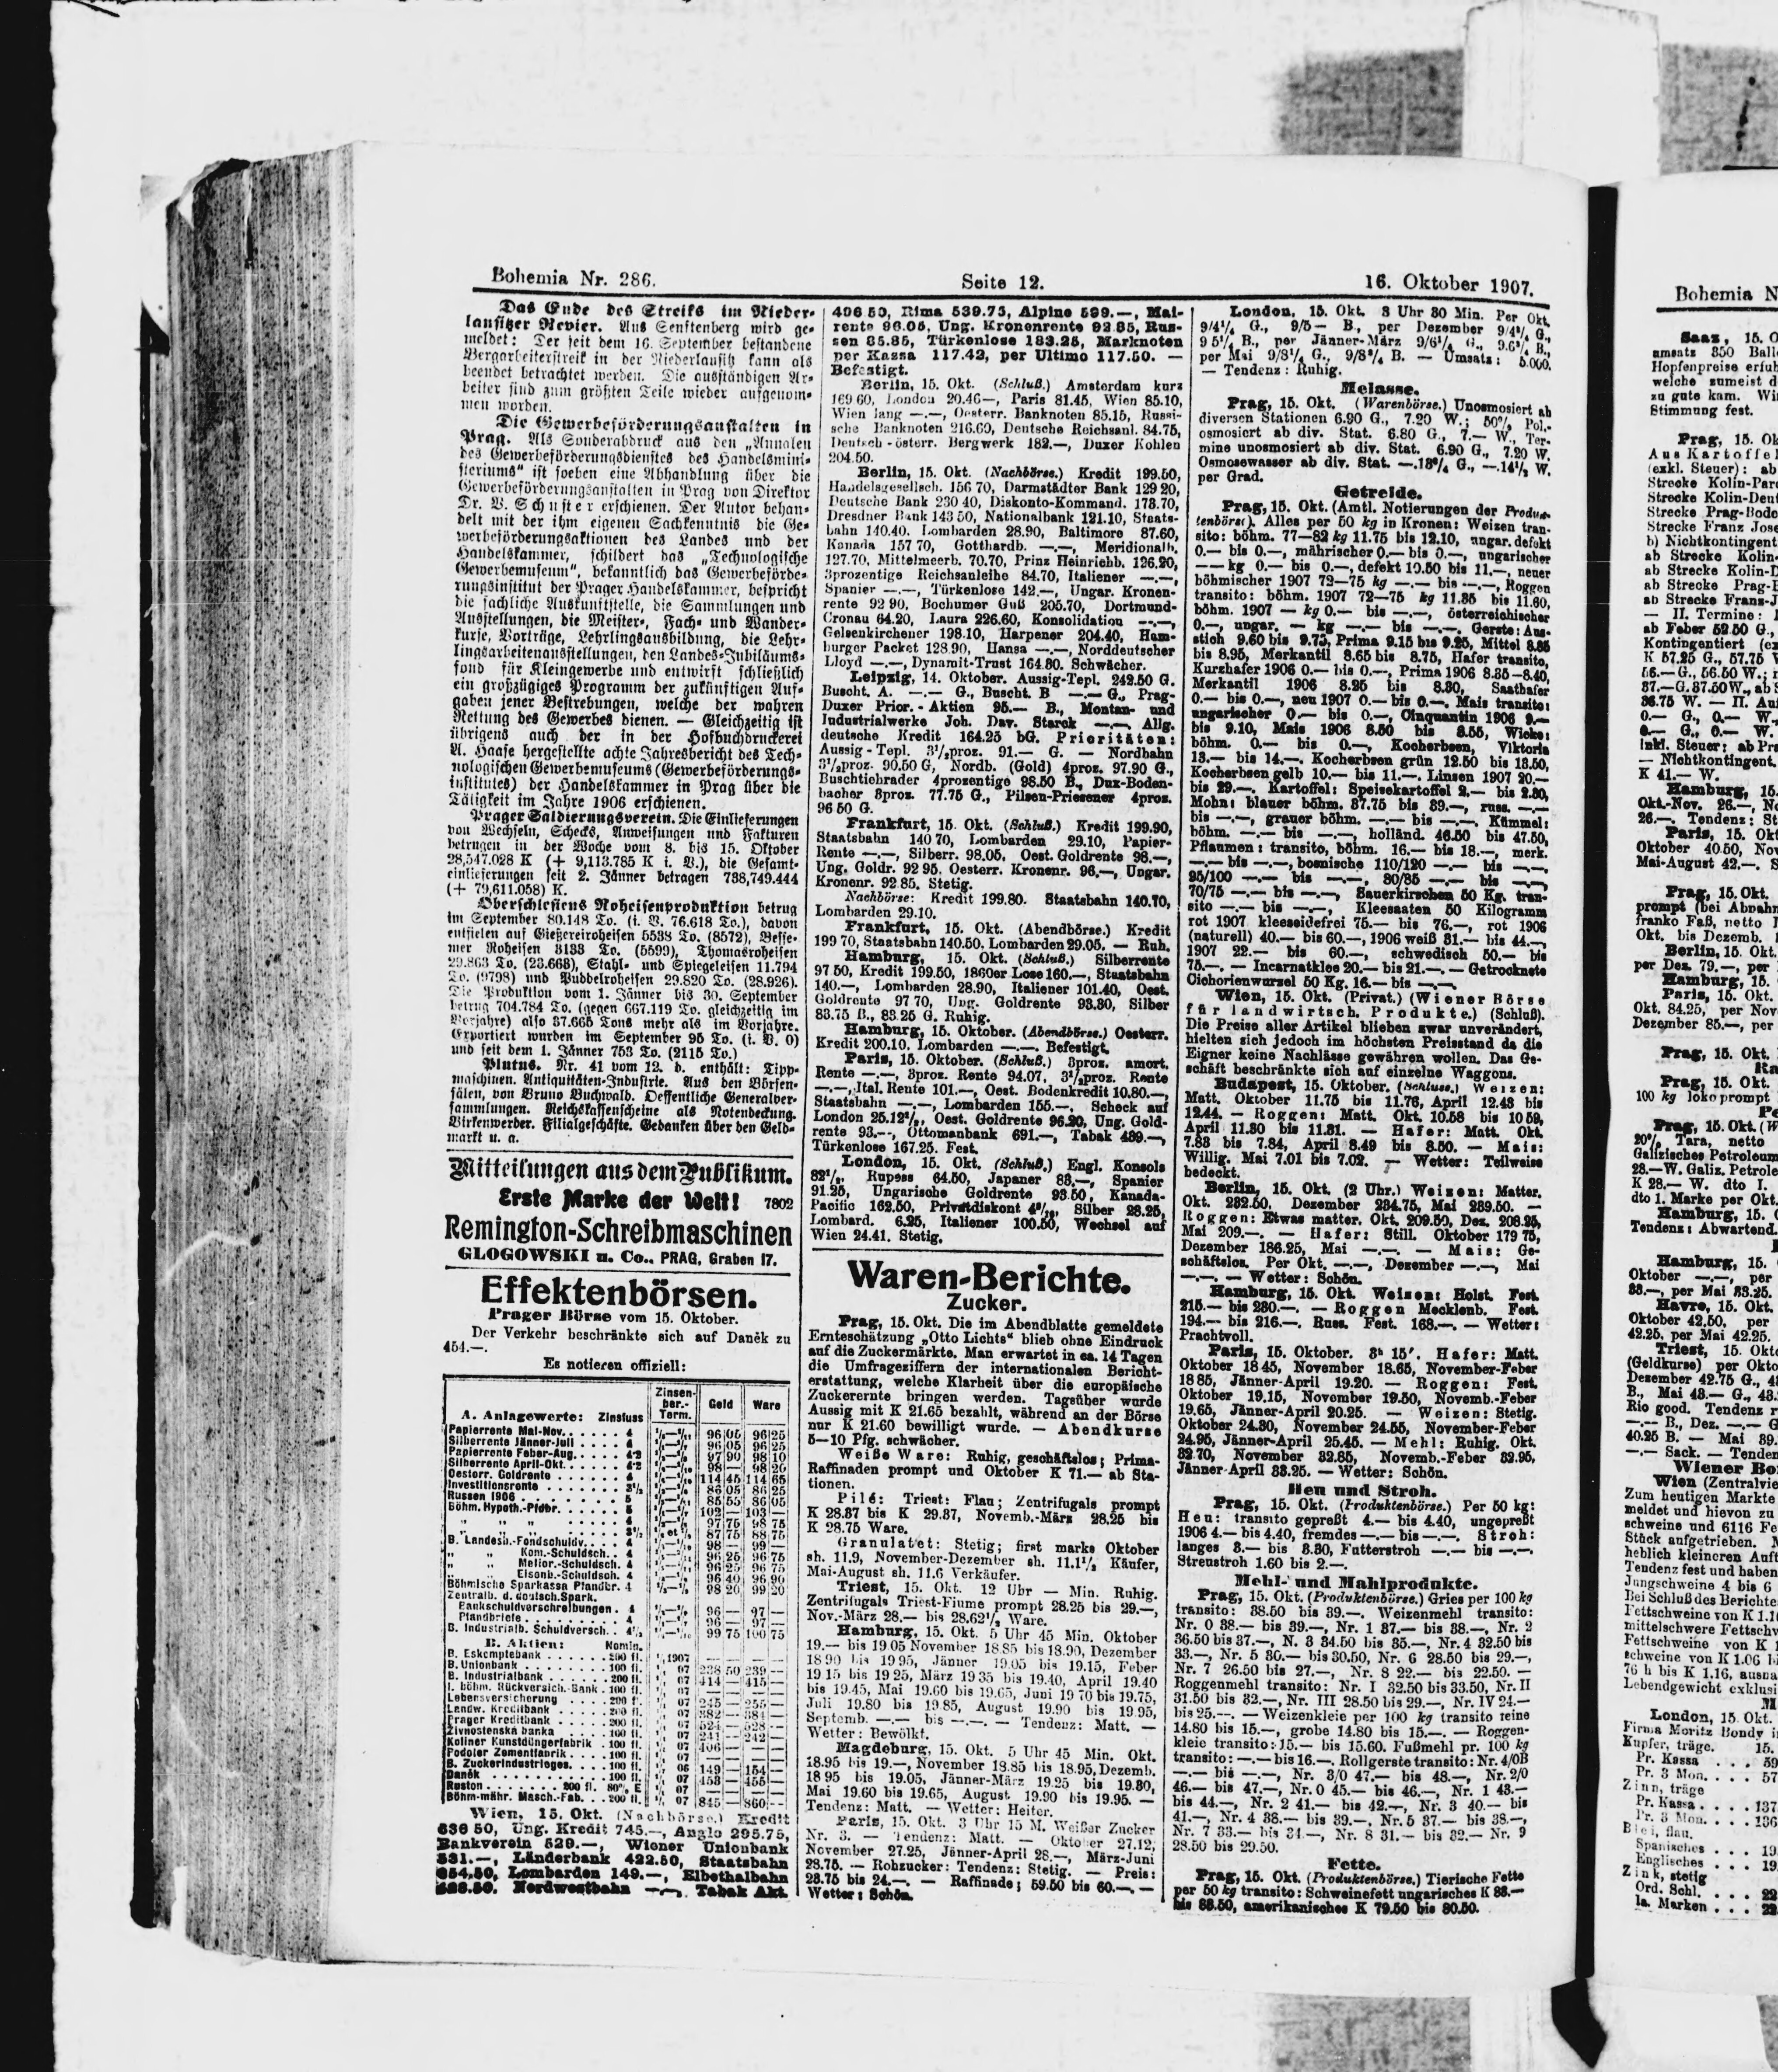 Bohemia Nr. 286.
Seite 12.
16. Oktober 1907.
Das Ende des Streiks im Nieder-
lausitzer Revier. Aus Senftenberg wird ge-
meldet: Der seit dem 16. September bestandene
Bergarbeiterstreik in der Niederlausitz kann als
beendet betrachtet werden. Die ausständigen Ar-
beiter sind zum größten Teile wieder aufgenom-
men worden.
Die Gewerbeförderungsanstalten in
Prag. Als Sonderabdruck aus den „Annalen
des Gewerbeförderungsdienstes des Handelsmini-
steriums" ist soeben eine Abhandlung über die
Gewerbeförderungsanstalten in Prag von Direktor
Dr. V. Schuster erschienen. Der Autor behan-
delt mit der ihm eigenen Sachkenntnis die Ge-
werbeförderungsaktionen des Landes und der
Handelskammer, schildert das „Technologische
Gewerbemuseum", bekanntlich das Gewerbeförde-
rungsinstitut der Prager Handelskammer, bespricht
die fachliche Auskunftstelle, die Sammlungen und
Ausstellungen, die Meister-, Fach- und Wander-
kurse, Vorträge, Lehrlingsausbildung, die Lehr-
lingsarbeitenausstellungen, den Landes-Jubiläums-
fond für Kleingewerbe und entwirft schließlich
ein großzügiges Programm der zukünftigen Auf-
gaben jener Bestrebungen, welche der wahren
Rettung des Gewerbes dienen. — Gleichzeitig ist
übrigens auch der in der Hofbuchdruckerei
A. Haase hergestellte achte Jahresbericht des Tech-
nologischen Gewerbemuseums (Gewerbeförderungs-
institutes) der Handelskammer in Prag über die
Tätigkeit im Jahre 1906 erschienen.
Prager Saldierungsverein. Die Einlieferungen
von Wechseln, Schecks, Anweisungen und Fakturen
betrugen in der Woche vom 8. bis 15. Oktober
28,547.028 K (+ 9,113.785 K i. V.), die Gesamt-
einlieferungen seit 2. Jänner betragen 738,749.444
(+ 79,611.058) K.
Oberschlesiens Roheisenproduktion betrug
im September 80.148 To. (i. V. 76.618 To.), davon
entfielen auf Gießereiroheisen 5538 To. (8572), Besse-
mer Roheisen 3133 To. (5599), Thomasroheisen
29.863 To. (23.668), Stahl- und Spiegeleisen 11.794
To. (9798) und Puddelroheisen 29.820 To. (28.926).
Die Produktion vom 1. Jänner bis 30. September
betrug 704.784 To. (gegen 667.119 To. gleichzeitig im
Vorjahre) also 37.665 Tons mehr als im Vorjahre.
Exportiert wurden im September 95 To. (i. V. 0)
und seit dem 1. Jänner 753 To. (2115 To.)
Plutus. Nr. 41 vom 12. d. enthält: Tipp-
maschinen. Antiquitäten-Industrie. Aus den Börsen-
sälen, von Bruno Buchwald. Oeffentliche Generalver-
sammlungen. Reichskassenscheine als Notendeckung.
Birkenwerder. Filialgeschäfte. Gedanken über den Geld-
markt u. a.
Mitteilungen aus dem Publikum.
Erste Marke der Welt! 7802
Remington-Schreibmaschinen
GLOGOWSKI u. Co., PRAG, Graben 17.
Effektenbörsen.
Prager Börse vom 15. Oktober.
Der Verkehr beschränkte sich auf Daněk zu
454.—.
Es notieren offiziell:
A. Anlagewerte: Zinsfuss Zinsen-ber.-Term. Geld Ware
Papierrente Mai-Nov. 4 96 05 96 25
Silberrente Jänner-Juli 4 96 05 96 25
Papierrente Feber-Aug. 4·2 97 90 98 10
Silberrente April-Okt. 4·2 98 — 98 20
Oesterr. Goldrente 4 114 45 114 65
Investitionsrente 3½ 86 05 86 25
Russen 1906 5 85 55 86 05
Böhm. Hypoth.-Pfdbr. 5 102 — 103 —
" " " 4 97 75 98 75
" " " 3½ 87 75 88 75
B. Landesb.-Fondschuldv. 4 98 — 99 —
" " Kom.-Schuldsch. 4 96 25 96 75
" " Melior.-Schuldsch. 4 96 25 96 75
" " Eisenb.-Schuldsch. 4 96 40 96 90
Böhmische Sparkassa Pfandbr. 4 98 20 99 20
Zentralb. d. deutsch. Spark.
Bankschuldverschreibungen 4 96 — 97 —
Pfandbriefe 4 96 — 97 —
B. Industrialb. Schuldversch. 4½ 99 75 100 75
B. Aktien: Nomin.
B. Eskomptebank 200 fl. 1907 — —
B. Unionbank 100 fl. 07 238 50 239 —
B. Industrialbank 200 fl. 07 414 — 415 —
I. böhm. Rückversich.-Bank 100 fl. 07 — —
Lebensversicherung 200 f. 07 245 — 255 —
Landw. Kreditbank 200 fl. 07 382 — 384 —
Prager Kreditbank 200 fl. 07 524 — 528 —
Živnostenská banka 100 fl. 07 241 — 242 —
Koliner Kunstdüngerfabrik 100 fl. 07 406 — —
Podoler Zementfabrik 100 fl. 07 — —
B. Zuckerindustrieges. 100 fl. 06 149 — 154 —
Daněk 100 fl. 07 453 — 455 —
Ruston 200 fl. 80% E 07 — —
Böhm-mähr. Masch.-Fab. 200 fl. 07 845 — 860 —
Wien, 15. Okt. (Nachbörse.) Kredit
636 50, Ung. Kredit 745.—, Anglo 295.75,
Bankverein 520.—, Wiener Unionbank
531.—, Länderbank 422.50, Staatsbahn
654.50, Lombarden 149.—, Elbethalbahn
Nordwestbahn —.—, Tabak Akt.
406 50, Rima 539.75, Alpine 599.—, Mai-
rente 96.05, Ung. Kronenrente 92.85, Rus-
sen 85.85, Türkenlose 183.25, Marknoten
per Kassa 117.42, per Ultimo 117.50. —
Befestigt.
Berlin, 15. Okt. (Schluß.) Amsterdam kurz
169 60, London 20.46—, Paris 81.45, Wien 85.10,
Wien lang —.—, Oesterr. Banknoten 85.15, Russi-
sche Banknoten 216.60, Deutsche Reichsanl. 84.75,
Deutsch-österr. Bergwerk 182.—, Duxer Kohlen
204.50.
Berlin, 15. Okt. (Nachbörse.) Kredit 199.50,
Handelsgesellsch. 156 70, Darmstädter Bank 129 20,
Deutsche Bank 230 40, Diskonto-Kommand. 178.70,
Dresdner Bank 143 50, Nationalbank 121.10, Staats-
bahn 140.40. Lombarden 28.90, Baltimore 87.60,
Kanada 157 70, Gotthardb. —.—, Meridionalb.
127.70, Mittelmeerb. 70.70, Prinz Heinrichb. 126.20,
3prozentige Reichsanleihe 84.70, Italiener —.—,
Spanier —.—, Türkenlose 142.—, Ungar. Kronen-
rente 92 90, Bochumer Guß 205.70, Dortmund-
Gronau 64.20, Laura 226.60, Konsolidation —.—,
Gelsenkirchener 198.10, Harpener 204.40, Ham-
burger Packet 128.90, Hansa —.—, Norddeutscher
Lloyd —.—, Dynamit-Trust 164.80. Schwächer.
Leipzig, 14. Oktober. Aussig-Tepl. 242.50 G.
Buscht. A. —.— G., Buscht. B —.— G., Prag-
Duxer Prior.-Aktien 95.— B., Montan- und
Industrialwerke Joh. Dav. Starck —.—, Allg.
deutsche Kredit 164.25 bG. Prioritäten:
Aussig-Tepl. 3½proz. 91.— G. — Nordbahn
3½proz. 90.50 G, Nordb. (Gold) 4proz. 97.90 G.,
Buschtiehrader 4prozentige 98.50 B., Dux-Boden-
bacher 3proz. 77.75 G., Pilsen-Priesener 4proz.
96 50 G.
Frankfurt, 15. Okt. (Schluß.) Kredit 199.90,
Staatsbahn 140 70, Lombarden 29.10, Papier-
Rente —.—, Silberr. 98.05, Oest. Goldrente 98.—,
Ung. Goldr. 92 95. Oesterr. Kronenr. 96.—, Ungar.
Kronenr. 92 85. Stetig.
Nachbörse: Kredit 199.80. Staatsbahn 140.70,
Lombarden 29.10.
Frankfurt, 15. Okt. (Abendbörse.) Kredit
199 70, Staatsbahn 140.50. Lombarden 29.05. — Ruh.
Hamburg, 15. Okt. (Schluß.) Silberrente
97 50, Kredit 199.50, 1860er Lose 160.—, Staatsbahn
140.—, Lombarden 28.90, Italiener 101.40, Oest.
Goldrente 97 70, Ung. Goldrente 93.30, Silber
83.75 B., 83.25 G. Ruhig.
Hamburg, 15. Oktober. (Abendbörse.) Oesterr.
Kredit 200.10. Lombarden —.—. Befestigt.
Paris, 15. Oktober. (Schluß.) 3proz. amort.
Rente —.—, 3proz. Rente 94.07, 3½proz. Rente
—.—, Ital. Rente 101.—, Oest. Bodenkredit 10.80.—,
Staatsbahn —.—, Lombarden 155.—. Scheck auf
London 25.12½, Oest. Goldrente 96.20, Ung. Gold-
rente 93.—, Ottomanbank 691.—, Tabak 489.—,
Türkenlose 167.25. Fest.
London, 15. Okt. (Schluß.) Engl. Konsols
82½, Rupees 64.50, Japaner 83.—, Spanier
91.25, Ungarische Goldrente 93.50, Kanada-
Pacific 162.50, Privatdiskont Silber 28.25,
Lombard. 6.25, Italiener 100.50, Wechsel auf
Wien 24.41. Stetig.
Waren-Berichte.
Zucker.
Prag, 15. Okt. Die im Abendblatte gemeldete
Ernteschätzung „Otto Lichts" blieb ohne Eindruck
auf die Zuckermärkte. Man erwartet in ca. 14 Tagen
die Umfrageziffern der internationalen Bericht-
erstattung, welche Klarheit über die europäische
Zuckerernte bringen werden. Tagsüber wurde
Aussig mit K 21.65 bezahlt, während an der Börse
nur K 21.60 bewilligt wurde. — Abendkurse
5—10 Pfg. schwächer.
Weiße Ware: Ruhig, geschäftslos; Prima-
Raffinaden prompt und Oktober K 71.— ab Sta-
tionen.
Pilé: Triest: Flau; Zentrifugals prompt
K 28.87 bis K 29.37, Novemb.-März 28.25 bis
K 28.75 Ware.
Granulatet: Stetig; first marks Oktober
sh. 11.9, November-Dezember sh. 11.1½ Käufer,
Mai-August sh. 11.6 Verkäufer.
Triest, 15. Okt. 12 Uhr — Min. Ruhig.
Zentrifugals Triest-Fiume prompt 28.25 bis 29.—,
Nov.-März 28.— bis 28.62½ Ware.
Hamburg, 15. Okt. 5 Uhr 45 Min. Oktober
19.— bis 19 05 November 18 85 bis 18.90, Dezember
18 90 bis 19 95, Jänner 19.05 bis 19.15, Feber
19 15 bis 19 25, März 19 35 bis 19.40, April 19.40
bis 19.45, Mai 19.60 bis 19.65, Juni 19 70 bis 19.75,
Juli 19.80 bis 19 85, August 19.90 bis 19.95,
Septemb. —.— bis —.—. — Tendenz: Matt. —
Wetter: Bewölkt.
Magdeburg, 15. Okt. 5 Uhr 45 Min. Okt.
18.95 bis 19.—, November 18.85 bis 18.95, Dezemb.
18 95 bis 19.05, Jänner-März 19.25 bis 19.30,
Mai 19.60 bis 19.65, August 19.90 bis 19.95. —
Tendenz: Matt. — Wetter: Heiter.
Paris, 15. Okt. 3 Uhr 15 M. Weißer Zucker
Nr. 3. — Tendenz: Matt. — Oktober 27.12,
November 27.25, Jänner-April 28.—, März-Juni
28.75. — Rohzucker: Tendenz: Stetig. — Preis:
28.75 bis 24.—. — Raffinade; 59.50 bis 60.—. —
Wetter: Schön.
London, 15. Okt. 3 Uhr 30 Min. Per Okt.
9/4¼ G., 9/5— B., per Dezember 9/4¼ G.,
9 5¼ B., per Jänner-März 9/6¼ G., 9.6¾ B.,
per Mai 9/8¼ G., 9/8¾ B. — Umsatz: 5.000.
— Tendenz: Ruhig.
Melasse.
Prag, 15. Okt. (Warenbörse.) Unosmosiert ab
diversen Stationen 6.90 G., 7.20 W.; 50% Pol.-
osmosiert ab div. Stat. 6.80 G., 7.— W., Ter-
mine unosmosiert ab div. Stat. 6.90 G., 7.20 W.
Osmosewasser ab div. Stat. —.13¾ G., —.14½ W.
per Grad.
Getreide.
Prag, 15. Okt. (Amtl. Notierungen der Produk-
tenbörse). Alles per 50 kg in Kronen: Weizen tran-
sito: böhm. 77—82 kg 11.75 bis 12.10, ungar. defekt
0.— bis 0.—, mährischer 0.— bis 0.—, ungarischer
—— kg 0.— bis 0.—, defekt 10.50 bis 11.—, neuer
böhmischer 1907 72—75 kg —.— bis —.—, Roggen
transito: böhm. 1907 72—75 kg 11.35 bis 11.60,
böhm. 1907 — kg 0.— bis —.—, österreichischer
0.—, ungar. — kg —.— bis —.—. Gerste: Aus-
stich 9.60 bis 9.75, Prima 9.15 bis 9.25, Mittel 8.85
bis 8.95, Merkantil 8.65 bis 8.75, Hafer transito,
Kurzhafer 1906 0.— bis 0.—, Prima 1906 8.35—8.40,
Merkantil 1906 8.25 bis 8.30, Saathafer
0.— bis 0.—, neu 1907 0.— bis 0.—. Mais transito:
ungarischer 0.— bis 0.—, Cinquantin 1906 9.—
bis 9.10, Mais 1906 8.50 bis 8.55, Wicke:
böhm. 0.— bis 0.—, Kocherbsen, Viktoria
13.— bis 14.—. Kocherbsen grün 12.50 bis 13.50,
Kocherbsen gelb 10.— bis 11.—. Linsen 1907 20.—
bis 29.—. Kartoffel: Speisekartoffel 2.— bis 2.30,
Mohn: blauer böhm. 37.75 bis 39.—, russ. —.—
bis —.—, grauer böhm. —.— bis —.—. Kümmel:
böhm. —.— bis —.—, holländ. 46.50 bis 47.50,
Pflaumen: transito, böhm. 16.— bis 18.—, merk.
—.— bis —.—, bosnische 110/120 —.— bis —.—,
95/100 —.— bis —.—, 80/85 —.— bis —.—,
70/75 —.— bis —.—, Sauerkirschen 50 Kg. tran-
sito —.— bis —.—, Kleesaaten 50 Kilogramm
rot 1907 kleeseidefrei 75.— bis 76.—, rot 1906
(naturell) 40.— bis 60.—, 1906 weiß 31.— bis 44.—,
1907 22.— bis 60.—, schwedisch 50.— bis
75.—. — Incarnatklee 20.— bis 21.—. — Getrocknete
Cichorienwurzel 50 Kg. 16.— bis —.—.
Wien, 15. Okt. (Privat.) (Wiener Börse
für landwirtsch. Produkte.) (Schluß).
Die Preise aller Artikel blieben zwar unverändert,
hielten sich jedoch im höchsten Preisstand da die
Eigner keine Nachlässe gewähren wollen. Das Ge-
schäft beschränkte sich auf einzelne Waggons.
Budapest, 15. Oktober. (Schluss.) Weizen:
Matt. Oktober 11.75 bis 11.76, April 12.43 bis
12.44. — Roggen: Matt. Okt. 10.58 bis 10 59,
April 11.30 bis 11.31. — Hafer: Matt. Okt.
7.83 bis 7.84, April 8.49 bis 8.50. — Mais:
Willig. Mai 7.01 bis 7.02. — Wetter: Teilweise
bedeckt.
Berlin, 15. Okt. (2 Uhr.) Weizen: Matter.
Okt. 232.50, Dezember 234.75, Mai 239.50. —
Roggen: Etwas matter. Okt. 209.50, Dez. 208.25,
Mai 209.—. — Hafer: Still. Oktober 179 75,
Dezember 186.25, Mai —.—. — Mais: Ge-
schäftslos. Per Okt. —.—, Dezember —.—, Mai
—.—. — Wetter: Schön.
Hamburg, 15. Okt. Weizen: Holst. Fest.
215.— bis 230.—. — Roggen Mecklenb. Fest.
194.— bis 216.—. Russ. Fest. 168.—. — Wetter:
Prachtvoll.
Paris, 15. Oktober. 3h 15'. Hafer: Matt.
Oktober 18 45, November 18.65, November-Feber
18 85, Jänner-April 19.20. — Roggen: Fest.
Oktober 19.15, November 19.50, Novemb.-Feber
19.65, Jänner-April 20.25. — Weizen: Stetig.
Oktober 24.30, November 24.55, November-Feber
24.95, Jänner-April 25.45. — Mehl: Ruhig. Okt.
32.70, November 32.85, Novemb.-Feber 32.95,
Jänner-April 33.25. — Wetter: Schön.
Heu und Stroh.
Prag, 15. Okt. (Produktenbörse.) Per 50 kg:
Heu: transito gepreßt 4.— bis 4.40, ungepreßt
1906 4.— bis 4.40, fremdes —.— bis —.—. Stroh:
langes 3.— bis 3.30, Futterstroh —.— bis —.—.
Streustroh 1.60 bis 2.—.
Mehl- und Mahlprodukte.
Prag, 15. Okt. (Produktenbörse.) Gries per 100 kg
transito: 38.50 bis 39.—. Weizenmehl transito:
Nr. 0 38.— bis 39.—, Nr. 1 37.— bis 38.—, Nr. 2
36.50 bis 37.—, N. 3 34.50 bis 35.—, Nr. 4 32.50 bis
33.—, Nr. 5 30.— bis 30.50, Nr. 6 28.50 bis 29.—,
Nr. 7 26.50 bis 27.—, Nr. 8 22.— bis 22.50. —
Roggenmehl transito: Nr. I 32.50 bis 33.50, Nr. II
31.50 bis 32.—, Nr. III 28.50 bis 29.—, Nr. IV 24.—
bis 25.—. — Weizenkleie per 100 kg transito reine
14.80 bis 15.—, grobe 14.80 bis 15.—. — Roggen-
kleie transito: 15.— bis 15.60. Fußmehl pr. 100 kg
transito: —.— bis 16.—. Rollgerste transito: Nr. 4/0B
—.— bis —.—, Nr. 3/0 47.— bis 48.—, Nr. 2/0
46.— bis 47.—, Nr. 0 45.— bis 46.—, Nr. 1 43.—
bis 44.—, Nr. 2 41.— bis 42.—, Nr. 3 40.— bis
41.—, Nr. 4 38.— bis 39.—, Nr. 5 37.— bis 38.—,
Nr. 7 33.— bis 34.—, Nr. 8 31.— bis 32.— Nr. 9
28.50 bis 29.50.
Fette.
Prag, 15. Okt. (Produktenbörse.) Tierische Fette
per 50 kg transito: Schweinefett ungarisches K 88.—
bis 88.50, amerikanisches K 79.50 bis 80.50.
Bohemia N
Saaz, 15. O
umsatz 350 Ball
Hopfenpreise erfuh
welche zumeist d
zu gute kam. Wi
Stimmung fest.
Prag, 15. Ok
Aus Kartoffel
(exkl. Steuer): ab
Strecke Kolin-Par
Strecke Kolin-Deut
Strecke Prag-Bode
Strecke Franz Jose
b) Nichtkontingent
ab Strecke Kolin-
ab Strecke Kolin-D
ab Strecke Prag-B
ab Strecke Franz-J
— II. Termine: I
ab Feber 52.50 G.,
Kontingentiert (ex
K 57.25 G., 57.75 W
56.—G., 56.50 W.; n
37.—G. 37.50 W., ab S
36.75 W. — II. Au
0.— G., 0.— W.,
0.— G., 0.— W.
inkl. Steuer: ab Pra
— Nichtkontingent.
K 41.— W.
Hamburg, 15.
Okt.-Nov. 26.—, No
26.—. Tendenz: St
Paris, 15. Okt
Oktober 40 50, Nov
Mai-August 42.—. S
Prag, 15. Okt.
prompt (bei Abnahm
franko Faß, netto
Okt. bis Dezemb.
Berlin, 15. Okt.
per Dez. 79.—, per
Hamburg, 15.
Paris, 15. Okt.
Okt. 84.25, per Nov
Dezember 85.—, per
Prag, 15. Okt.
Ra
Prag, 15. Okt.
100 kg loko prompt
Pe
Prag, 15. Okt. (W
20% Tara, netto
Galizisches Petroleum
28.—W. Galiz. Petrole
K 28.— W. dto I.
dto I. Marke per Okt.
Hamburg, 15. O
Tendenz: Abwartend.
Hamburg, 15.
Oktober —.—, per
33.—, per Mai 33.25.
Havre, 15. Okt.
Oktober 42.50, per
42.25, per Mai 42.25.
Triest, 15. Okto
(Geldkurse) per Okto
Dezember 42.75 G., 4
B., Mai 43.— G., 43.
Rio good. Tendenz r
—.— B., Dez. —.— G
40.25 B. — Mai 39.
—.— Sack. — Tenden
Wiener Bo
Wien (Zentralvie
Zum heutigen Markte
meldet und hievon zu
schweine und 6116 Fe
Stück aufgetrieben.
heblich kleineren Auft
Tendenz fest und haben
Jungschweine 4 bis 6
Bei Schluß des Berichte
Fettschweine von K 1.1
mittelschwere Fettschw
Fettschweine von K 1
schweine von K 1.06 b
76 h bis K 1.16, ausna
Lebendgewicht exklusi
M
London, 15. Okt.
Firma Moritz Bondy i
Kupfer, träge. 15.
Pr. Kassa . . . 59
Pr. 3 Mon. . . . 57
Zinn, träge
Pr. Kassa . . . . 137
Pr. 3 Mon. . . . 136
Blei, flau.
Spanisches . . . 19
Englisches . . . 19
Zink, stetig
Ord. Schl. . . . 22
la. Marken . . . 22